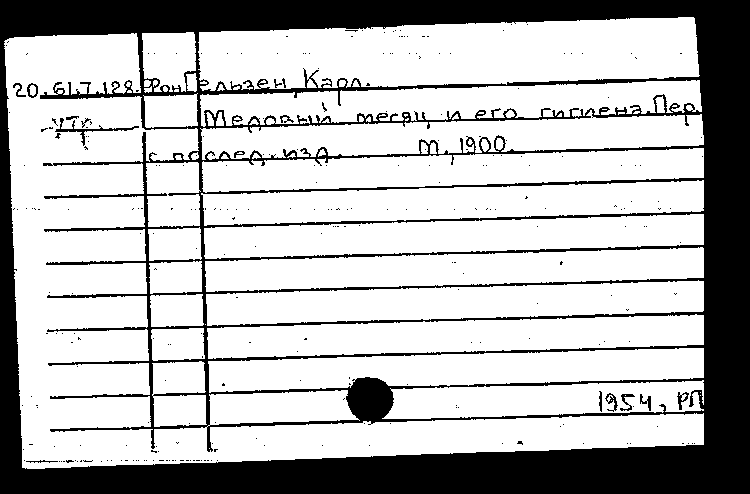 20.61.7.128. Фон Гельзен, Карл.
утр. Медовый месяц и его гигиена. Пер.
с послед. изд. М., 1900.
1954, РП